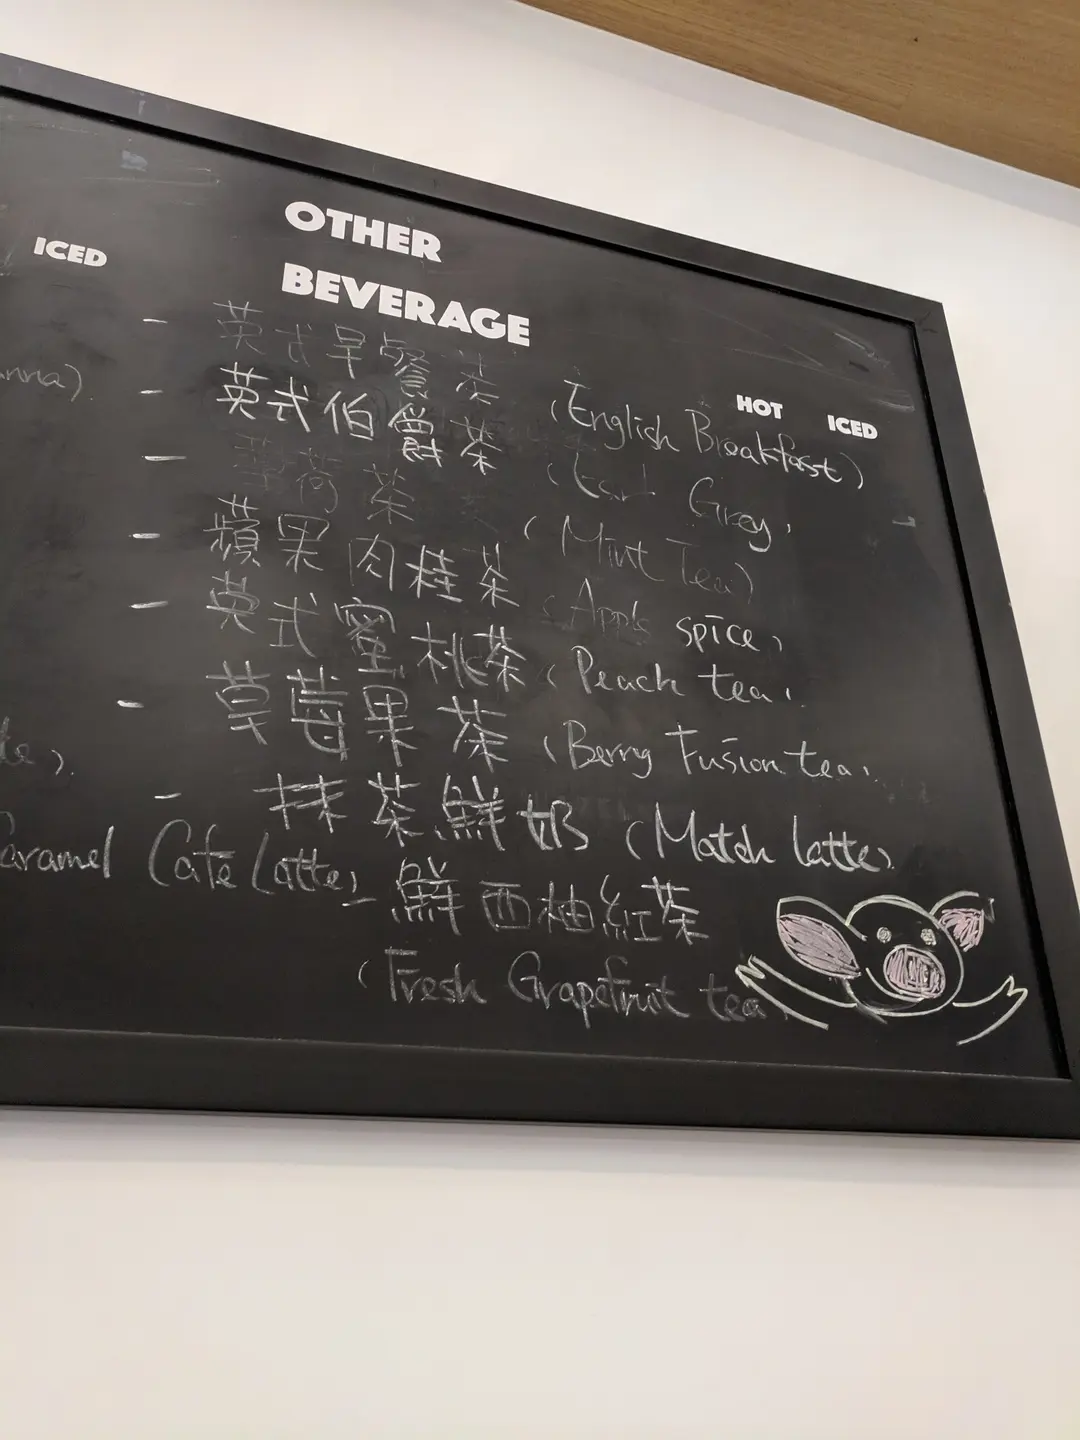 OTHER
BEVERAGE
ICED
HOT ICED
英式早餐茶 (English Breakfast)
英式伯爵茶 (Earl Grey)
薄荷茶 (Mint Tea)
蘋果肉桂茶 (Apple spice)
英式蜜桃茶 (Peach tea)
草莓果茶 (Berry Fusion tea)
抹茶鮮奶 (Match latte)
Caramel Cafe Latte)
- 鮮西柚紅茶
(Fresh Grapefruit tea)